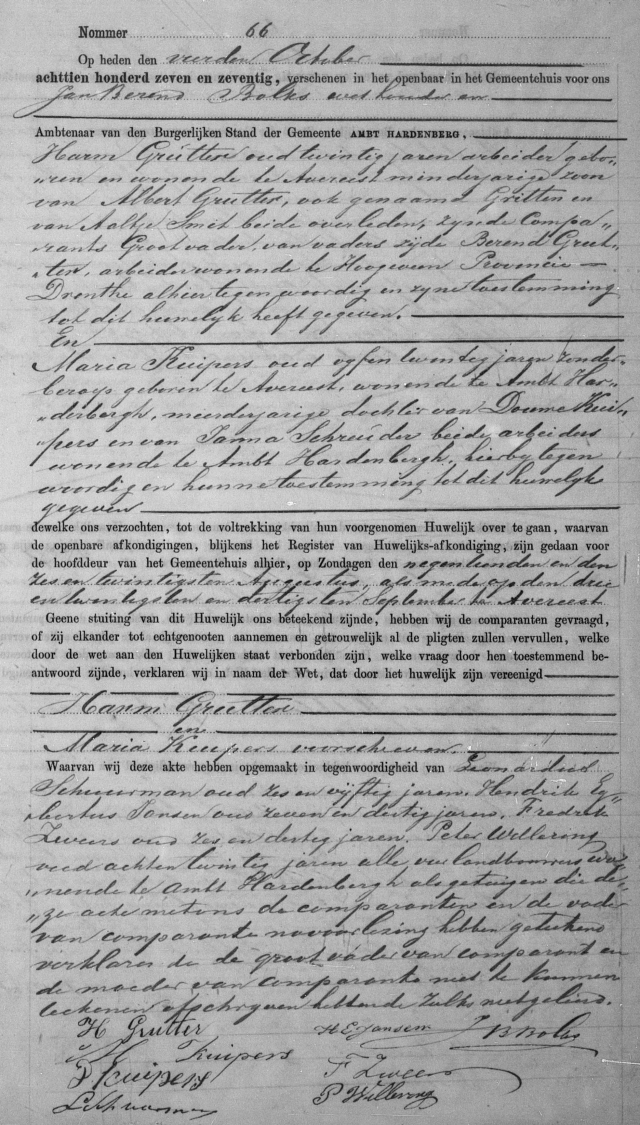 Nommer 66
Op heden den vierden October
achttien honderd zeven en zeventig, verschenen in het openbaar in het Gemeentehuis voor ons
Jan Berend Bolks wethouder en
Ambtenaar van den Burgerlijken Stand der Gemeente AMBT HARDENBERG,
Harm Grutter oud twintig jaren arbeider gebo-
"ren en wonende te Avereest minderjarige zoon
van Albert Grutter, ook genaamd Gritten en
van Aaltje Smit beide overleden, zijnde Compa"
"rants Grootvader, van vaders zijde Berend Grut-
"ter, arbeider wonende te Hoogeveen Provincie
Drenthe alhier tegenwoordig en zyne toestemming
tot dit huwelyk heeft gegeven.
En
Maria Kuipers oud en twintig jaren zonder
beroep geboren te Avereest, wonende te Ambt Har"
"derbergh, meerderjarige dochter van Douwe Kui"
"pers en van Janna Schreuder beide arbeiders
wonende te Ambt Hardenbergh, hierby tegen
woordig en hunne toestemming tot dit huwelyk
gegeven
dewelke ons verzochten, tot de voltrekking van hun voorgenomen Huwelijk over te gaan, waarvan
de openbare afkondigingen, blijkens het Register van Huwelijks-afkondiging, zijn gedaan voor
de hoofddeur van het Gemeentehuis alhier, op Zondagen den negentienden en den
zes en twintigsten Augustus, als mede op den drie
en twintigsten en dertigsten September te Avereest
Geene stuiting van dit Huwelijk ons beteekend zijnde, hebben wij de comparanten gevraagd,
of zij elkander tot echtgenooten aannemen en getrouwelijk al de pligten zullen vervullen, welke
door de wet aan den Huwelijken staat verbonden zijn, welke vraag door hen toestemmend be-
antwoord zijnde, verklaren wij in naam der Wet, dat door het huwelijk zijn vereenigd
Harm Grutter
en
Maria Kuipers voorschreven.
Waarvan wij deze akte hebben opgemaakt in tegenwoordigheid van Leonardus
Schuurman oud zes en vyftig jaren. Hendrik Eg"
"bertus Jansen oud zeven en dertig jaren. Fredrik
Zweers oud zes en dertig jaren. Peter Wellering
oud acht en twintig jaren alle vier landbouwers wo"
"nende te Ambt Hardenbergh als getuigen die de"
"ze acte met ons de comparanten en de vader
van comparante na voorlezing hebben geteekend
verklarende de grootvader van comparant en
de moeder van comparante niet te kunnen
teekenen of schryven hebbende zulks niet geleerd.
H Grutter H E Jansen J B Bolks
Kuipers
Kuipers F Zweers
L Schuurman P Willering